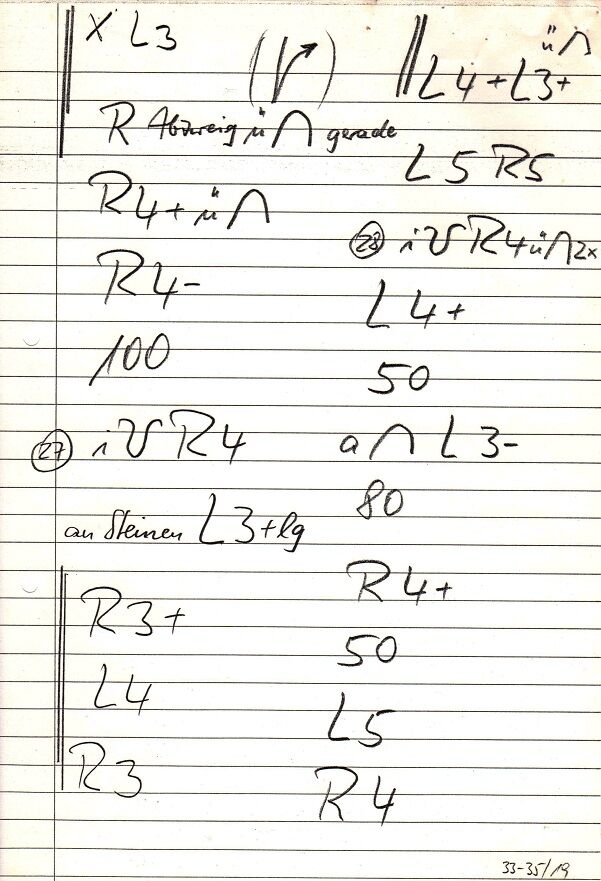 X L3
R Abzweig ü ∩ gerade
R4+ ü ∩
R4-
100
27 i V R4
an Steinen L3+ lg
R3+
L4
R3
ü ∩
L4+ L3+
L5 R5
28 i V R4 ü ∩ 2x
L4+
50
a ∩ L3-
80
R4+
50
L5
R4
33-35/19